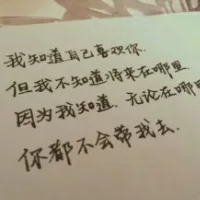 我知道自己喜欢你.
但我不知道将来在哪里.
因为我知道.无论在哪
你都不会带我去.